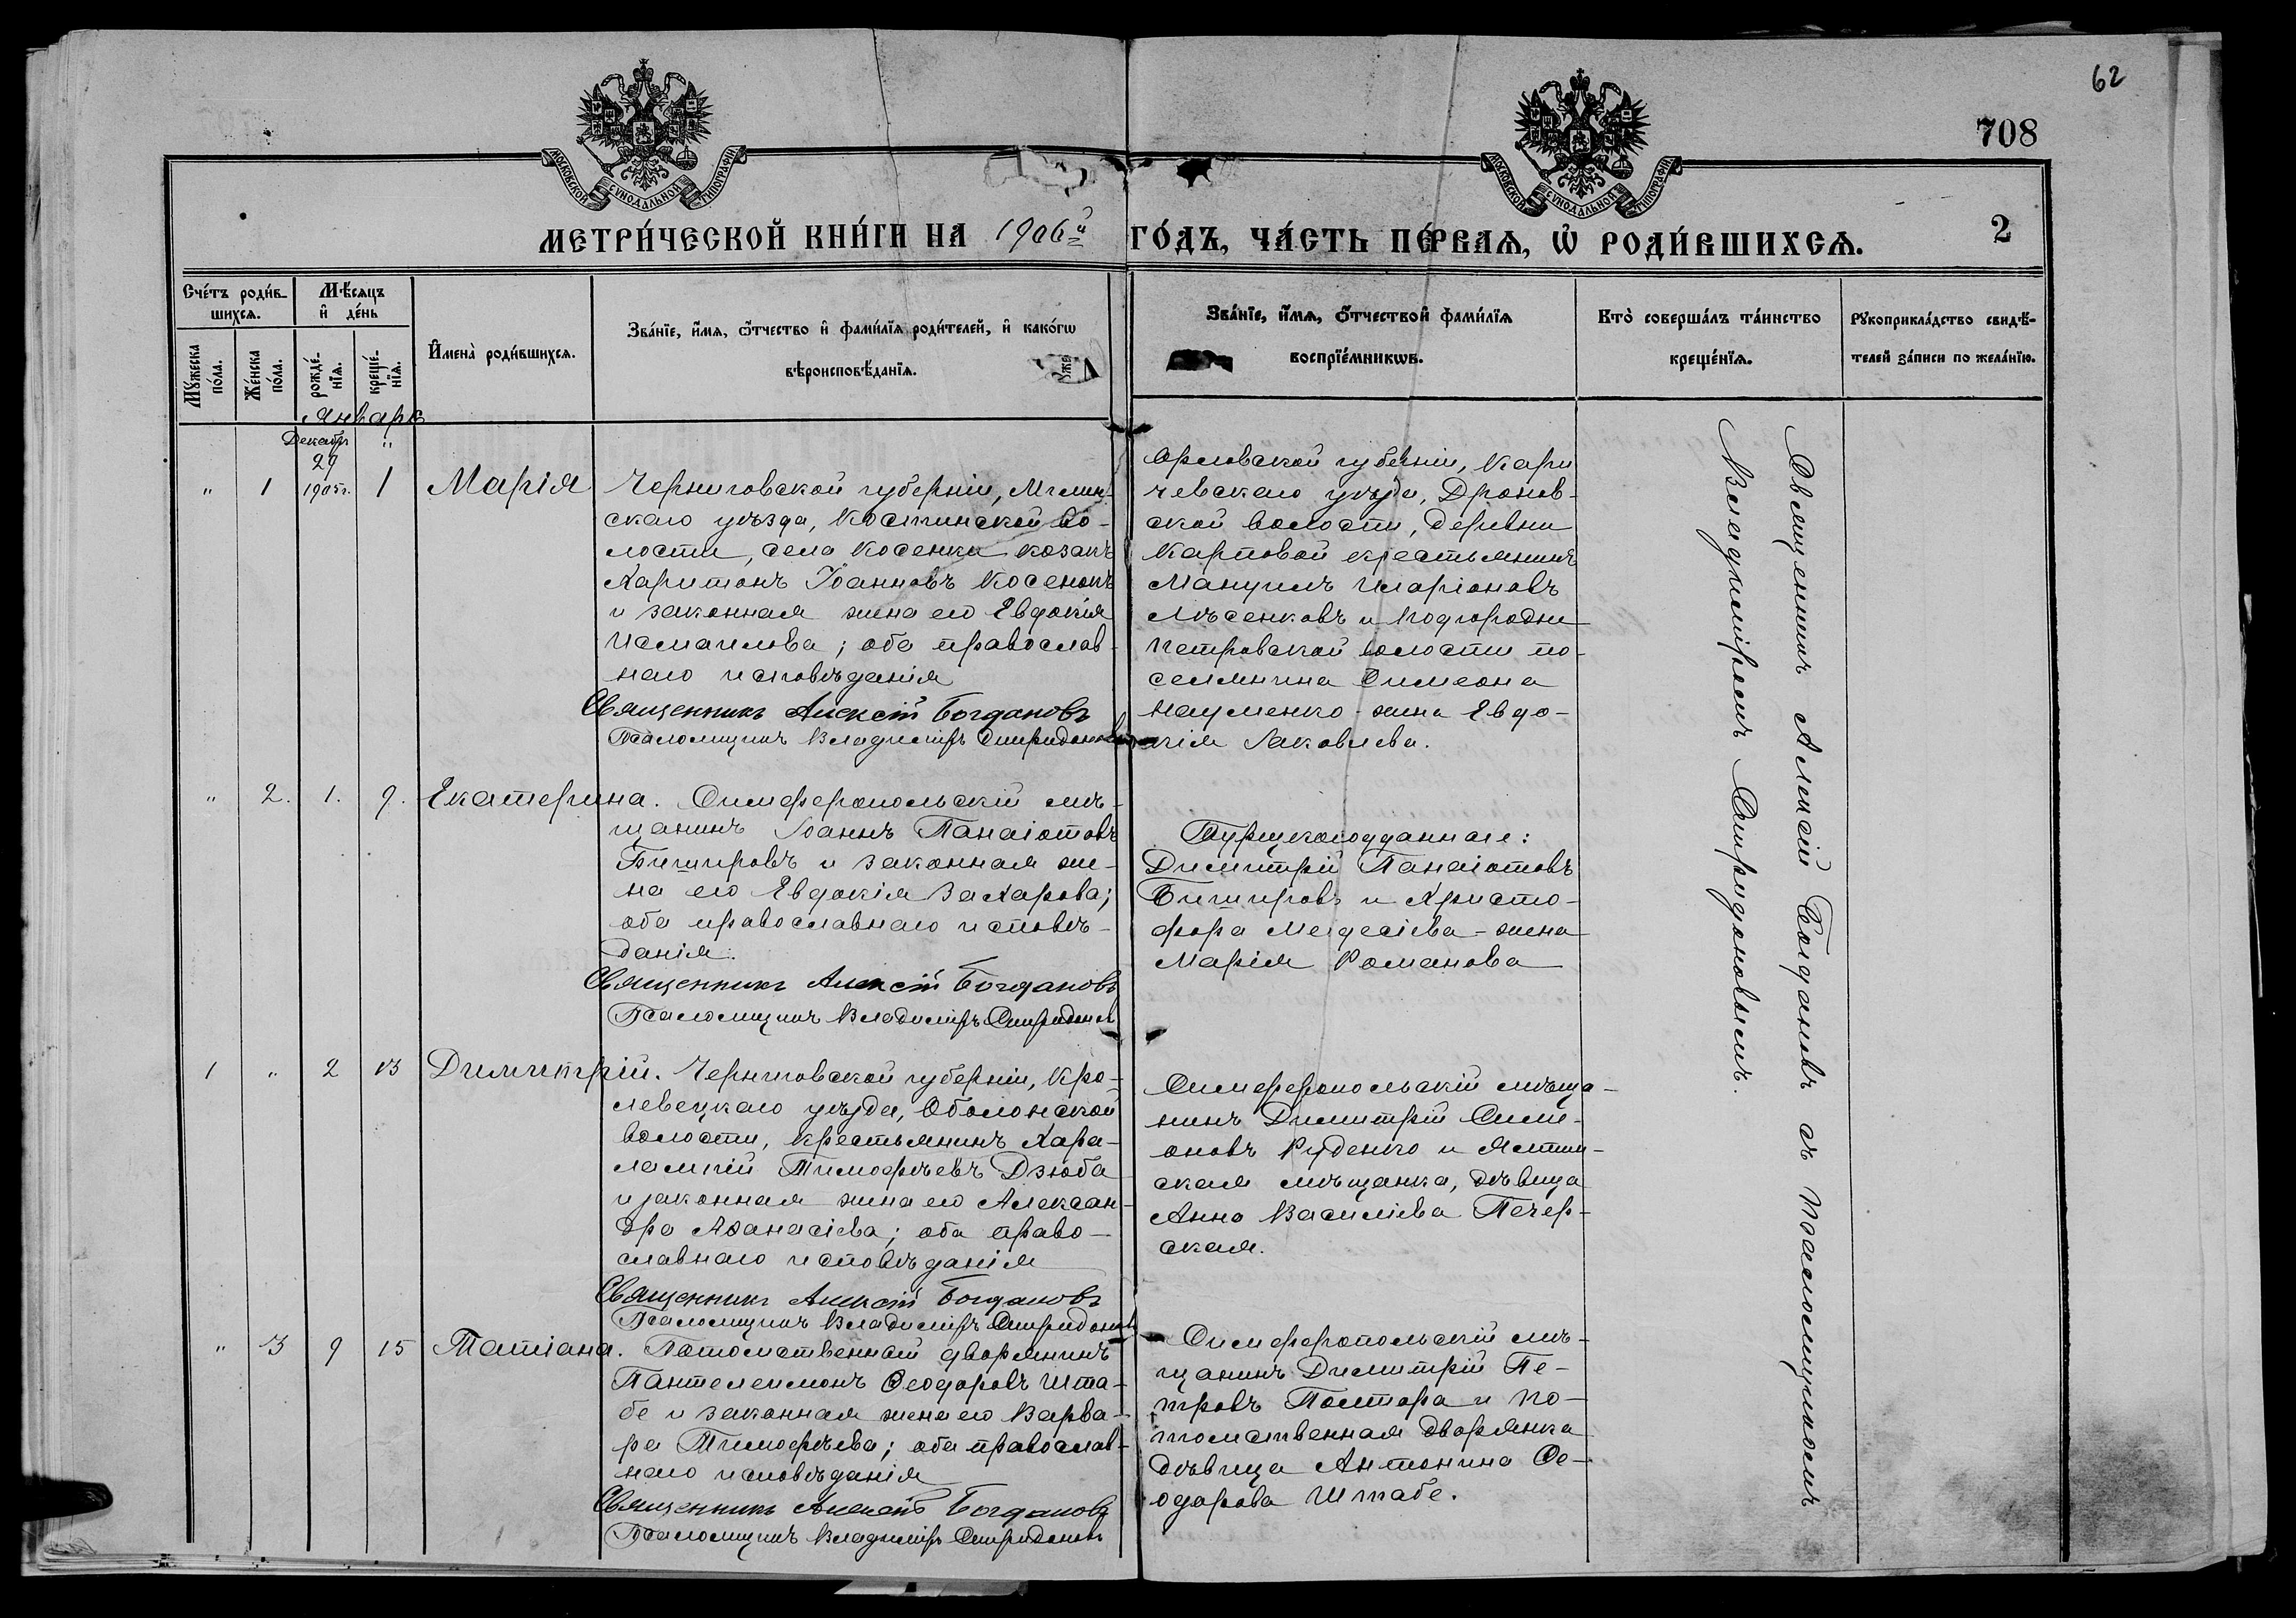 62
708
МОСКОВСКОЙ СѴНОДАЛЬНОЙ ТИПОГРАФІИ
МОСКОВСКОЙ СѴНОДАЛЬНОЙ ТИПОГРАФІИ
МЕТРИ́ЧЕСКОЙ КНИ́ГИ НА 1906й ГО́ДЪ, ЧА́СТЬ ПЕ́РВАЯ, Ѡ РОДИ́ВШИХСЯ.
2
Сче́тъ роди́в-
шихся.
Мѣ́сяцъ
и де́нь
Му́жеска по́ла.
Же́нска по́ла.
рожде́-
нїя.
креще́-
нїя.
Имена̀ роди́вшихся.
Зва́нїе, и́мя, о́тчество и фами́лїя роди́телей, и како́гѡ
вѣроисповѣ́данїя.
Зва́нїе, и́мя, о́тчество и фами́лїя
воспрїе́мникѡвъ.
Кто̀ соверша́лъ та́инство
креще́нїя.
Рукоприкла́дство свидѣ́-
телей за́писи по жела́нїю.
Январь
Декабр. "
" 1 29 1905г. 1 Марія
Черниговской губерніи, Мглин-
скаго уѣзда, Костинской во-
лости, села Косенки козакъ
Харитонъ Іоанновъ Косенокъ
и законная жена его Евдокія
Исмаилова; оба православ-
наго исповѣданія
Священникъ Алексій Богдановъ
Псаломщикъ Владиміръ Спиридоновъ
Орловской губерніи, Кара
чевскаго уѣзда, Дронов-
ской волости, деревни
Карповой крестьянинъ
Мануилъ Иларіоновъ
Лѣсенковъ и Подгородне
Петровской волости по-
селянина Симеона
Науменко - жена Евдо-
кія Іаковлева.
" 2. 1. 9. Екатерина.
Симферопольскій мѣ-
щанинъ Іоаннъ Панаіотовъ
Бишировъ и законная же-
на его Евдокія Захарова;
оба православнаго исповѣ-
данія.
Священникъ Алексій Богдановъ
Псаломщикъ Владиміръ Спиридонов
Турецкоподданные:
Димитрій Панаіотовъ
Бишировъ и Христо-
фора - жена
Марія Романова
1 " 2 13 Димитрій.
Черниговской губерніи, Кро-
левецкаго уѣзда, Оболонской
волости, крестьянинъ Хара-
лампій Тимофѣевъ Дзюба
и законная жена его Алексан-
дра Аѳанасіева; оба право-
славнаго исповѣданія
Священникъ Алексій Богдановъ
Псаломщикъ Владиміръ Спиридонов
Симферопольскій мѣща-
нинъ Димитрій Симе-
оновъ Руденко и Ялтин-
ская мѣщанка, дѣвица
Анна Василіева Печер-
ская.
" 3 9 15 Татіана.
Потомственный дворянинъ
Пантелеимонъ Ѳеодоровъ Шта-
бе и законная жена его Варва-
ра Тимофѣева; оба православ-
наго исповѣданія
Священникъ Алексій Богдановъ
Псаломщикъ Владиміръ Спиридонов
Симферопольскій мѣ-
щанинъ Димитрій Пе-
тровъ Полтора и по-
томственная дворянка
дѣвица Антонина Ѳе-
одорова Штабе.
Священникъ Алексій Богдановъ съ псаломщикомъ
Владиміромъ Спиридоновымъ.